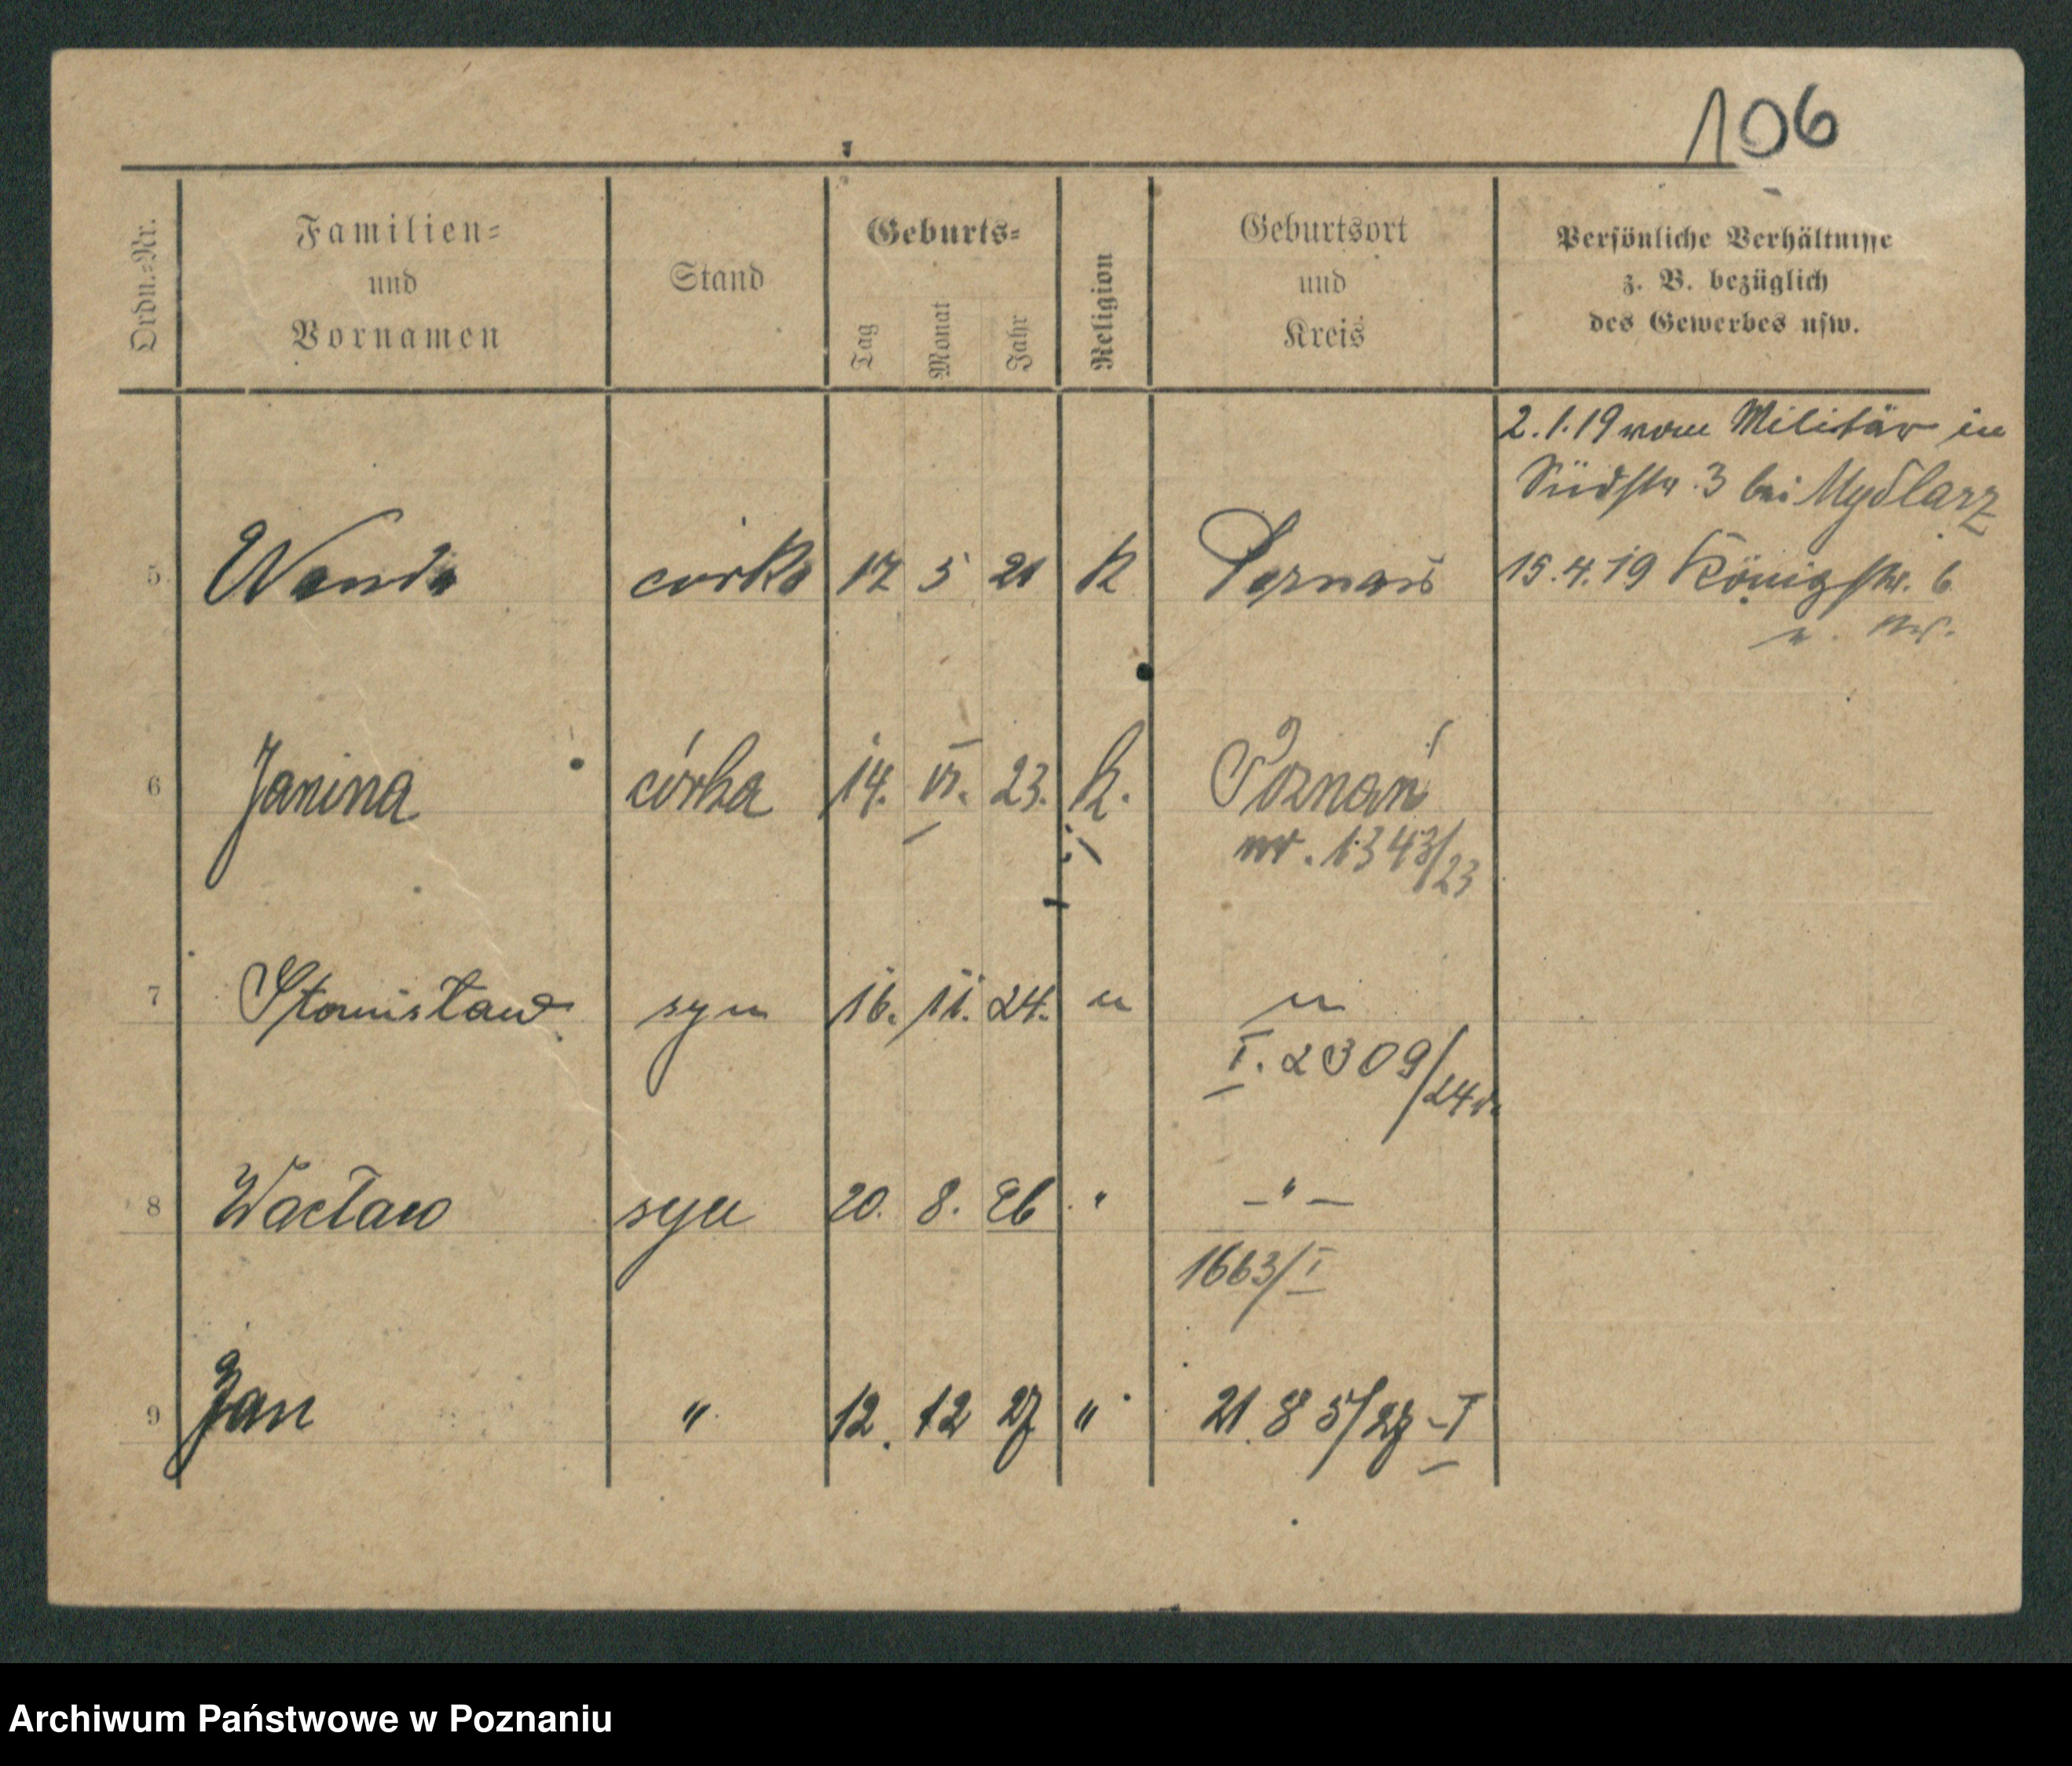 106
Ordn.=Nr.
Familien=
und
Vornamen
Stand
Geburts=
Tag
Monat
Jahr
Religion
Geburtsort
und
Kreis
Persönliche Verhältnisse
z. B. bezüglich
des Gewerbes usw.
2.1.19 vom Militär in
Südstr. 3 bei Mydlarz
5 Wanda córka 17 5 21 K Poznań 15.4.19 Königstr. 6
6 Janina córka 14. VI. 23. K. Poznań
nr. 1343/23
7 Stanisław syn 16. 11. 24. " "
I. 2309/24
8 Wacław syn 20. 8. 26 " - " -
1663/I
9 Jan " 12. 12 27 " 2185/27-I
Archiwum Państwowe w Poznaniu